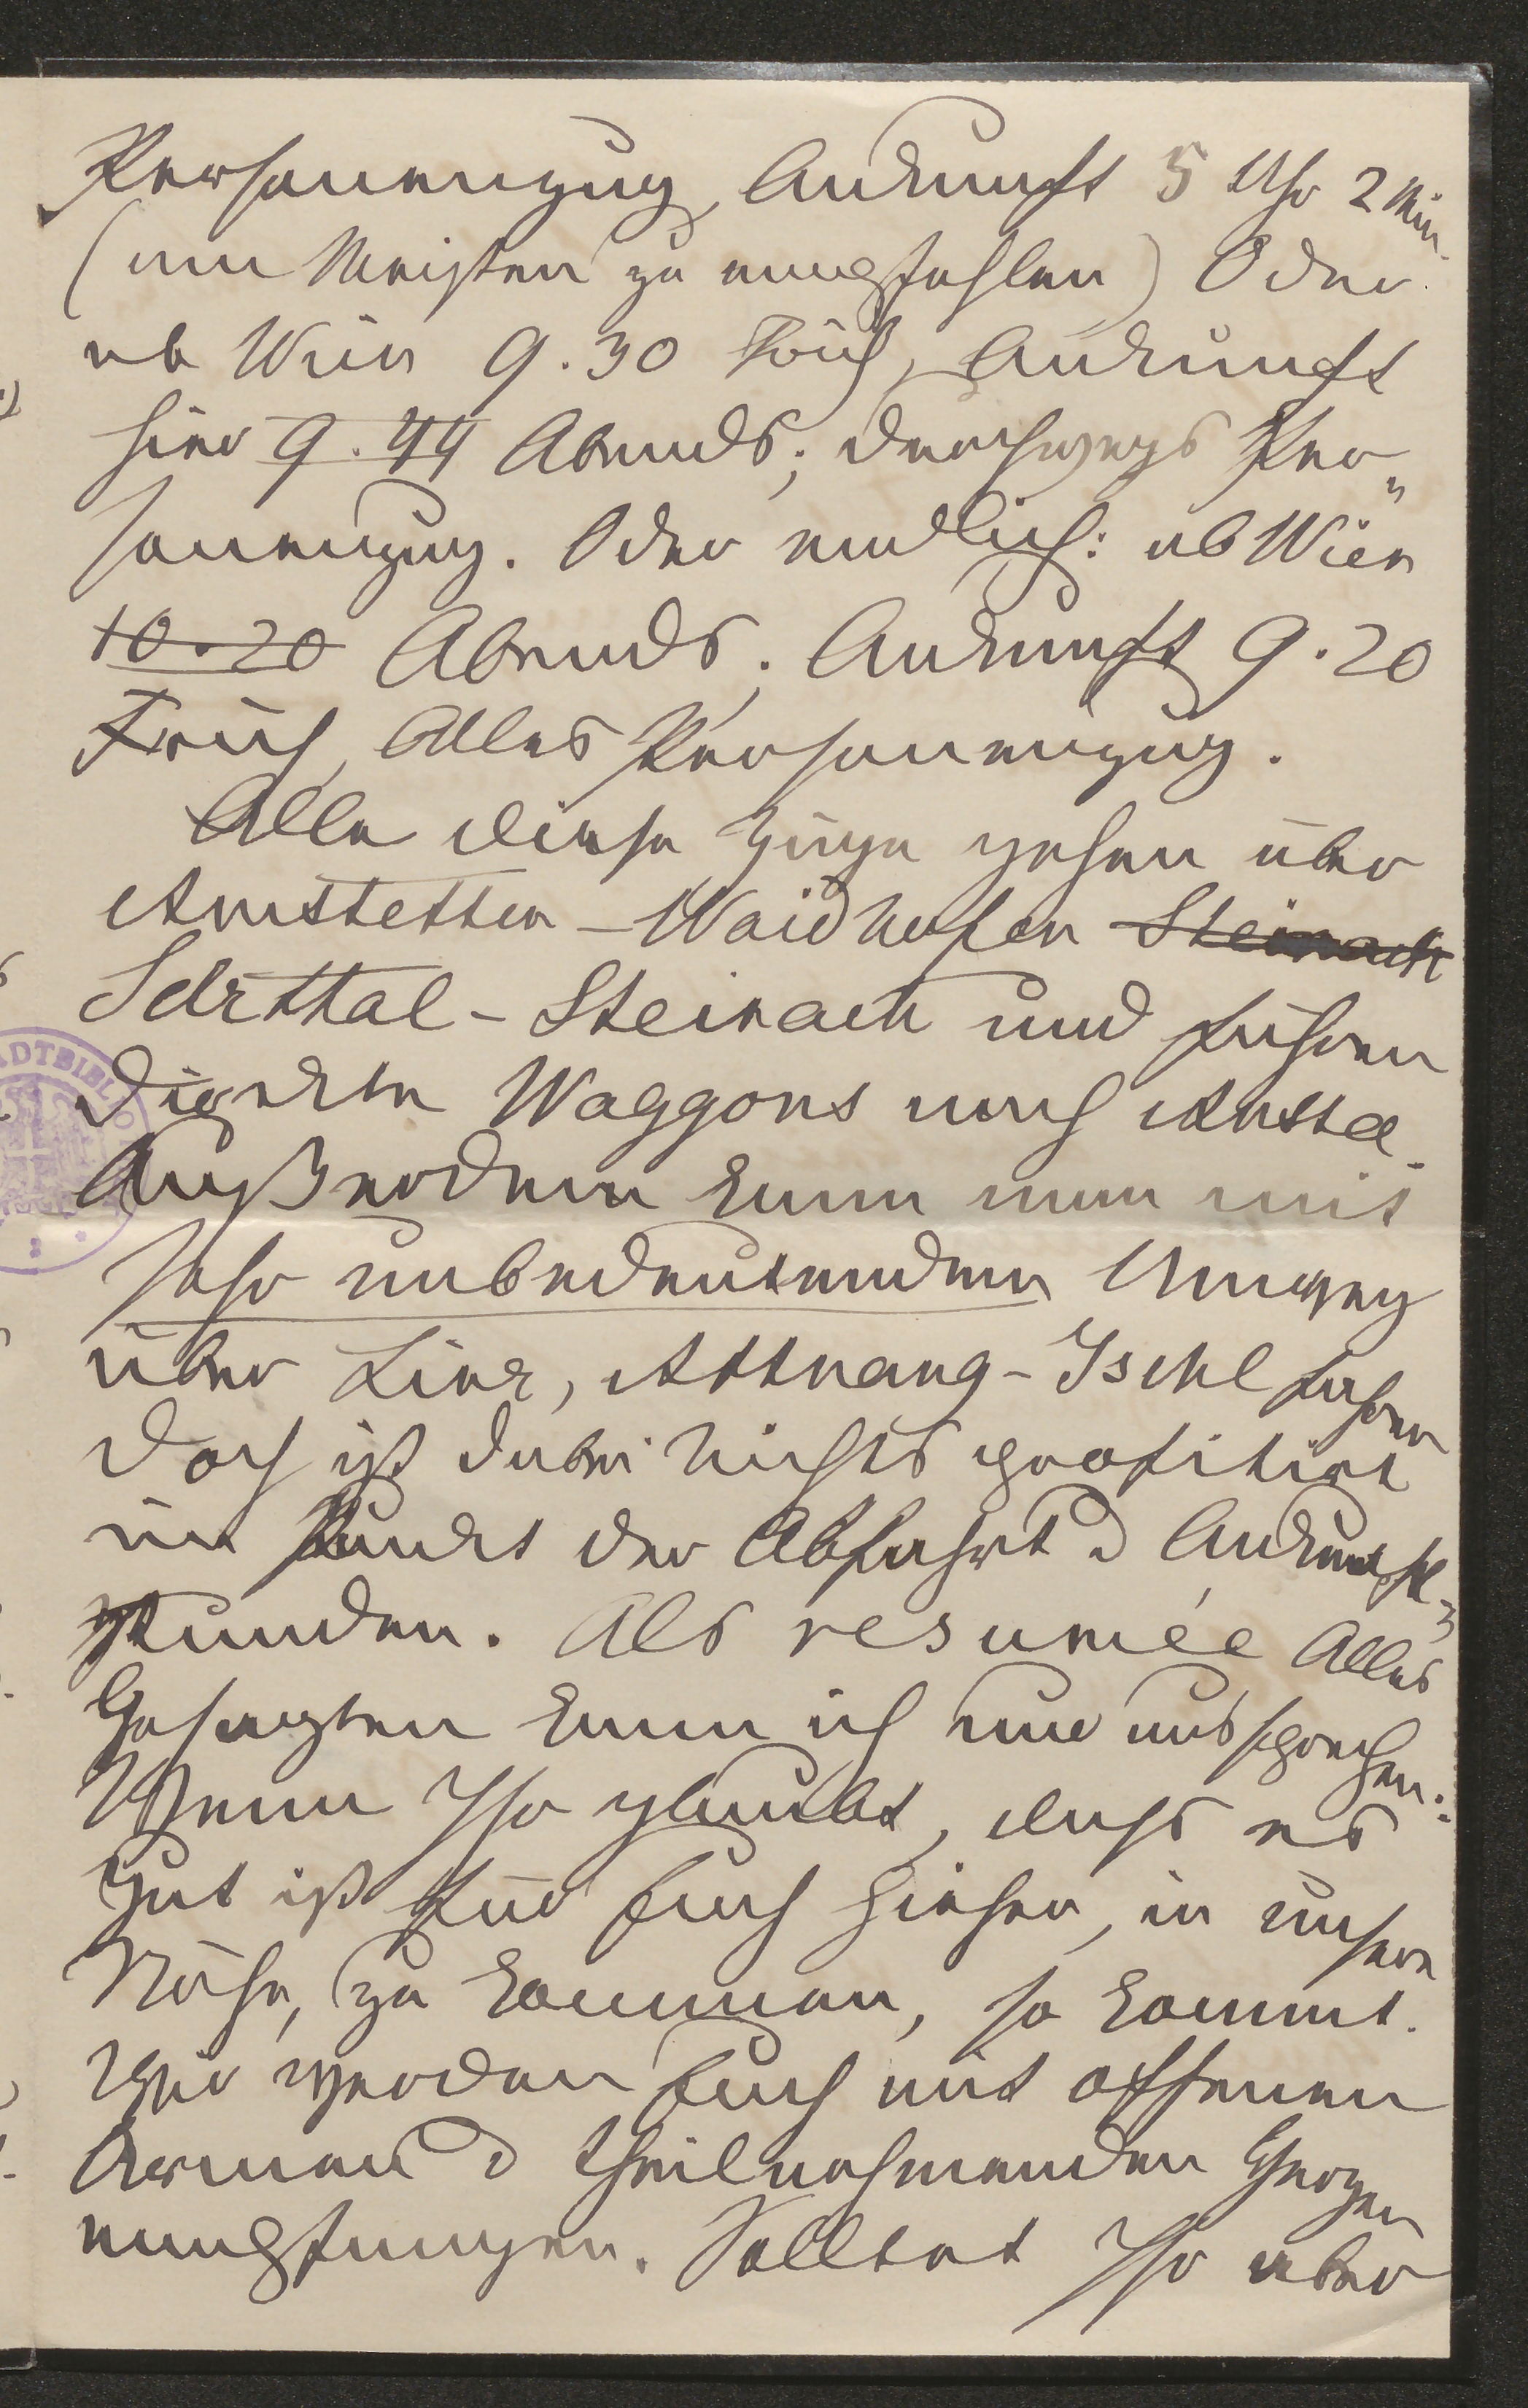 Personenzug, Ankunft 5 Uhr 2 Min.
(am Meisten zu empfehlen) Oder
ab Wien 9.30 Früh, Ankunft
hier 9.44 Abends; durchwegs Per„
sonenzug. Oder endlich: ab Wien
10.20 Abends. Ankunft 9.20
Früh, Alles Personenzug.
Alle diese Züge gehen über
Amstetten – Waidhofen Steinach
Selzthal – Steinach und führen
direkte Waggons nach Aussee.
Außerdem kann man mit
sehr unbedeutendem Umweg
über Linz, Attnang – Ischl fahren
doch ist dabei Nichts profitirt
im Punkt der Abfahrt & Ankunfts-
stunden. Als resumée Alles
Gesagten kann ich nur aussprechen:
Wenn Ihr glaubt, dass es
gut ist für Euch hieher, in unsere
Nähe, zu kommen, so kommt.
Wir werden Euch mit offenen
Armen & theilnehmenden Herzen
empfangen. Solltet Ihr aber
ADTBIBLIO